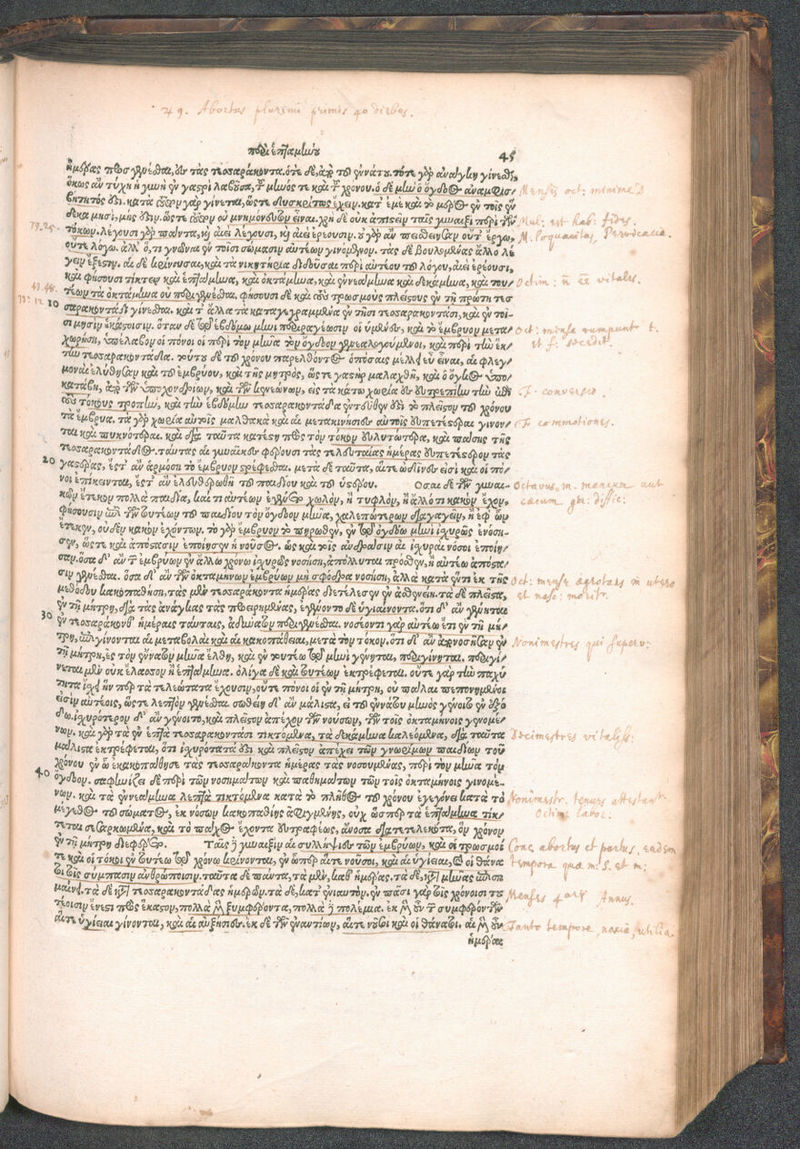 49. Abortus plurimi primis 40 diebus.
περὶ ἑπταμήνου 45
ἡμέρας πρὸς γίνεται, ἢν τὰς τεσσαράκοντα. ὁτὲ δὲ, ἀπὸ τοῦ ἐννάτου. τότε γὰρ ἀνάγκη γίνεσθαι,
ὅκως ἂν τύχῃ ἡ γυνὴ ἐν γαστρὶ λαβοῦσα, τοῦ μηνός τε καὶ τοῦ χρόνου. ὁ δὲ μὴν ὁ ὄγδοος ἀναμφισ-
βητητός ἐστι. κατὰ γὰρ γίνεται, ὥστε δυσκρίτως ἔχειν. κατ' ἐμὲ καὶ τὸ μέρος ἐν τοῖς ἐν
δέκα μησὶ, μής ἐστιν. ὥστε οὐ μνημόνευον εἶναι. χρὴ δὲ οὐκ ἀπιστεῖν ταῖς γυναιξὶ περὶ τῶν
τόκων. λέγουσι γὰρ πάντα, καὶ ἀεὶ λέγουσι, καὶ ἀεὶ ἐρέουσιν. οὐ γὰρ ἂν πεισθεῖησαν οὔτ' ἔργῳ,
οὔτε λόγῳ. ἀλλ' ὅ, τι γνῶναι ἐν τοῖσι σώμασιν αὐτέων γινόμενον. τοῖς δὲ βουλομένοις ἄλλο λέ
γειν ἔξεστιν. αἱ δὲ κρίνουσαι, καὶ τὰ νικητήρια διδοῦσαι περὶ αὐτέου τοῦ λόγου, ἀεὶ ἐρέουσι,
καὶ φήσουσι τίκτειν καὶ ἑπτάμηνα, καὶ ὀκτάμηνα, καὶ ἐννεάμηνα καὶ δεκάμηνα, καὶ τού-
τέων τὰ ὀκτάμηνα οὐ περιγίνεσθαι. φήσουσι δὲ καὶ τοὺς τρωσμοὺς πλείστους ἐν τῇ πρώτῃ τεσ
10 σαρακοντάδι γίνεσθαι. καὶ τ' ἄλλα τὰ καταγεγραμμένα ἐν τῇσι τεσσαράκοντάσι, καὶ ἐν τοῖ-
σι μησὶν ἑκάστοισιν. ὅταν δὲ τῷ ἑβδόμῳ μηνὶ περιραγέωσιν οἱ ὑμένες, καὶ τὸ ἔμβρυον μετα-
χωρήσῃ, ὑπέλαβον οἱ πόνοι οἱ περὶ τὸν μῆνα τὸν ὄγδοον γενεαλογούμενοι, καὶ περὶ τὴν ἕκ-
την τεσσαρακοντάδα. τούτου δὲ τοῦ χρόνου παρελθόντος ὁπόσαις μέλλει εὖ εἶναι, αἱ φλεγ-
μοναὶ ἐλύθησαν καὶ τοῦ ἐμβρύου, καὶ τῆς μητρὸς, ὥστε γαστὴρ μαλαχθῇ, καὶ ὁ ὄγκος ὑπο-
κατέβη, ἀπὸ τῶν ὑποχονδρίων, καὶ τῶν κενεώνων, εἰς τὰ κάτω χωρία ἐν εὐτρεπῆ τὴν ὡς
τοὺς τόκους τροπὴν, καὶ τὴν ἑβδόμην τεσσαρακοντάδα ἐντεῦθεν δὴ τὸ πλεῖστον τοῦ χρόνου
τὰ ἔμβρυα. τὰ γὰρ χωρία αὐτοῖς μαλθακὰ καὶ αἱ μετακινήσιες αὐτοῖς εὐπετέστεραι γίνον-
ται καὶ πυκνότεραι. καὶ διὰ ταῦτα κατέστη πρὸς τὸν τόκον εὐλυτώτερα, καὶ πάσης τῆς
τεσσαρακοντάδος. ταύτας αἱ γυναῖκες φέρουσι τὰς τελευταίας ἡμέρας εὐπετέστερον τὰς
20 γαστέρας, ἔστ' ἂν ἁρμόσῃ τὸ ἔμβρυον στρέφεσθαι. μετὰ δὲ ταῦτα, αἵ τε ὠδῖνες εἰσὶ καὶ οἱ πό-
νοι ἐπίκεινται, ἔστ' ἂν ἐλευθερωθῇ τοῦ παιδίου καὶ τοῦ ὑστέρου. Ὅσαι δὲ τῶν γυναι-
κῶν ἔτεκον πολλὰ παιδία, καί τι αὐτέων ἐγένετο χωλὸν, ἢ τυφλὸν, ἢ ἄλλο τι κακὸν ἔχον,
φήσουσιν ἐπὶ τῶν τουτέων τοῦ παιδίου τὸν ὄγδοον μῆνα, χαλεπώτερον διαγαγεῖν, ἢ ἐφ' ὧν
ἔτεκον, οὐδὲν κακὸν ἐχόντων. τὸ γὰρ ἔμβρυον τὸ πηρωθὲν, ἐν τῷ ὀγδόῳ μηνὶ ἰσχυρῶς ἐνόση-
σεν, ὥστε καὶ ἀπόστασιν ἐποίησεν ἡ νοῦσος. ὡς καὶ τοῖς ἀνδράσιν αἱ ἰσχυραὶ νόσοι ἐποίη-
σαν. ὅσα δ' ἂν τῶν ἐμβρύων ἐν ἄλλῳ χρόνῳ ἰσχυρῶς νοσήσῃ, ἀπόλλυται πρόσθεν, ἢ αὐτέῳ ἀπόστα-
σιν γενέσθαι. ὅσα δ' ἂν τῶν ὀκταμήνων ἐμβρύων μὴ σφόδρα νοσήσῃ, ἀλλὰ κατὰ ἔντι ἐκ τῆς
μεθόδου κακοπαθήσῃ, τὰς μὲν τεσσαράκοντα ἡμέρας διετέλεσεν ἐν ἀσθενείῃ. τὰ δὲ πλεῖστα,
ἐν τῇ μήτρῃ, διὰ τὰς ἀνάγκας τὰς προειρημένας, ἐγένοντο δὲ ὑγιαίνοντα. ὅτι δ' ἂν γένηται
30 ἐν τεσσαράκονθ' ἡμέραις ταύταις, ἀδύνατον περιγενέσθαι. νοσέοντι γὰρ αὐτέῳ ἔτι ἐν τῇ μή-
τρῃ, ἐπιγίνονται αἱ μεταβολαὶ καὶ αἱ κακοπάθειαι, μετὰ τὸν τόκον. ὅτι δ' ἂν ἀρχνοσῆσαν ἐν
τῇ μήτρῃ, ἐς τὸν ἔννατον μῆνα ἔλθῃ, καὶ ἐν τουτέῳ τῷ μηνὶ γένηται, περιγίνηται. περιγί-
νεται μὲν οὐκ ἔλασσον ἢ ἑπτάμηνα. ὀλίγα δὲ καὶ τουτέων ἐκτρέφεται. οὔτε γὰρ τὴν παχύ
τητα ἔχει ἥν περ τὰ τελεώτατα ἔχουσιν, οὔτε πόνοι οἱ ἐν τῇ μήτρῃ, οὐ πάλαι πεπονημένοι
εἰσὶν αὐτέοις, ὥστε λεπτὸν γενέσθαι. σωθείη δ' ἂν μάλιστα, εἰ τοῦ ἐννάτου μηνὸς γένοιτο ἐν ἐξό
δῳ. ἰσχυρότερον δ' ἂν γένοιτο, καὶ πλεῖστον ἀπέχον τῶν νούσων, τῶν τοῖς ὀκταμήνοις γινομέ-
νων. καὶ γὰρ τὰ ἐν ἑπτὰ τεσσαράκοντάσι τικτόμενα, τὰ δεκάμηνα καλεόμενα, διὰ ταῦτα
μάλιστα ἐκτρέφεται, ὅτι ἰσχυρότατά ἐστι καὶ πλεῖστον ἀπέχει τῶν γνωρίμων παιδίων τοῦ
χρόνου ἐν ᾧ ἐκακοπάθησε τὰς τεσσαράκοντα ἡμέρας τὰς νοσουμένας, περὶ τὸν μῆνα τὸν
40 ὄγδοον. σαφηνίζει δὲ περὶ τῶν νοσημάτων καὶ παθημάτων τῶν τοῖς ὀκταμήνοις γινομέ-
νων. καὶ τὰ ἐννεάμηνα λεπτὰ τικτόμενα κατὰ τὸ πλῆθος τοῦ χρόνου ἐγεγόνει κατὰ τὸ
μέγεθος τοῦ σώματος, ἐκ νόσων κακοπαθίης ἀφιγμένης, οὐχ ὥσπερ τὰ ἑπτάμηνα τίκ-
τεται σεσαρκωμένα, καὶ τὸ πάχος ἔχοντα εὐτραφέως, ἄνοσα διατετελεκότα, ὃν χρόνον
ἐν τῇ μήτρῃ διέφερεν. Ταῖς δὲ γυναιξὶν αἱ συλλήψιες τῶν ἐμβρύων, καὶ οἱ τρωσμοί
τε καὶ οἱ τόκοι ἐν τουτέῳ τῷ χρόνῳ κρίνονται, ἐν ᾧπερ αἵ τε νοῦσοι, καὶ αἱ ὑγίειαι, καὶ οἱ θάνα
τοι τοῖς σύμπασιν ἀνθρώποισιν. ταῦτα δὲ πάντα, τὰ μὲν, καθ' ἡμέρας. τὰ δὲ, κατὰ μῆνας ἀποση
μαίνει. τὰ δὲ κατὰ τεσσαρακοντάδας ἡμερῶν. τὰ δὲ, κατ' ἐνιαυτόν. ἐν πᾶσι γὰρ τοῖς χρόνοισι του
τέοισιν ἔνεστι πρὸς ἕκαστον, πολλὰ μὲν ξυμφέροντα, πολλὰ δὲ πολέμια. ἐκ μὲν οὖν τῶν συμφερόντων
αἵ τε ὑγίειαι γίνονται, καὶ αἱ αὐξήσεις. ἐκ δὲ τῶν ἐναντίων, αἵ τε νοῦσοι καὶ οἱ θάνατοι. αἱ μὲν οὖν
ἡμέραι
Mensis oct: minime
Mul: est hab: fides.
M. loquacitas, Pervicacia.
Octim: vitalis.
Oct: mense rumpunt
et f. secedit.
F. conversio.
F. commotiones.
Octavus, m. mancum aut
caecum ger: diffic:
Oct: mense aegrotans in utero
et nasc: moritr.
Nonimestres qui superv:
Decimestres vitales:
Nonimestr. tenues attestant
Octim. labor:
Conc, abortus et partus, eadem
tempora quae m: s. et m:
Menses 40 Annus.
tempore, noxia, utilia.